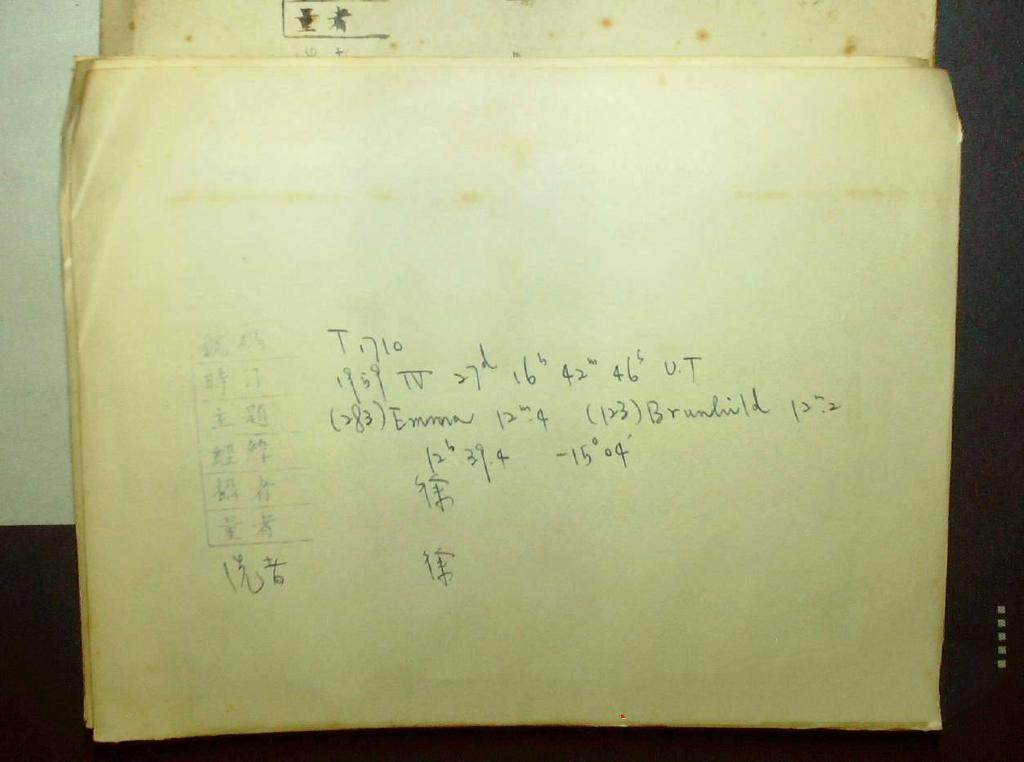 量者
號碼 T 1710
時刻 1959 IV 27d 16h 42m 46s U.T
主題 (283) Emma 12m.4 (123) Brunhild 12m.2
經緯 12h 39.4 -15° 04'
攝者 徐
量者
洗者 徐